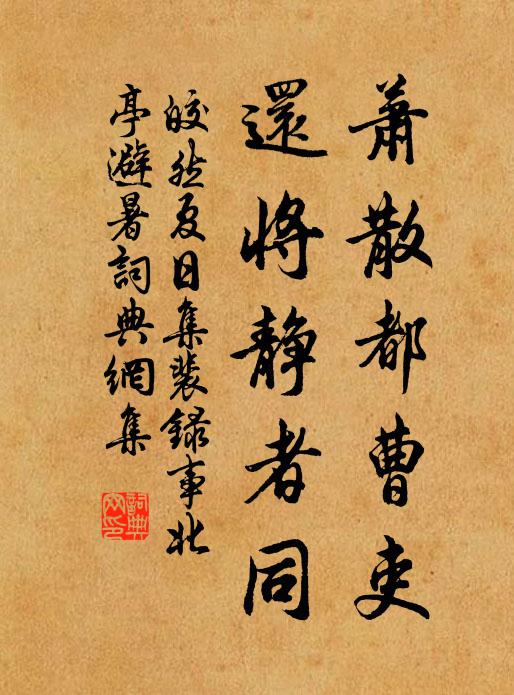 蕭散都曹吏
還將靜者同
皎然夏日集裴錄事北
亭避暑詞典網集
詞典網印